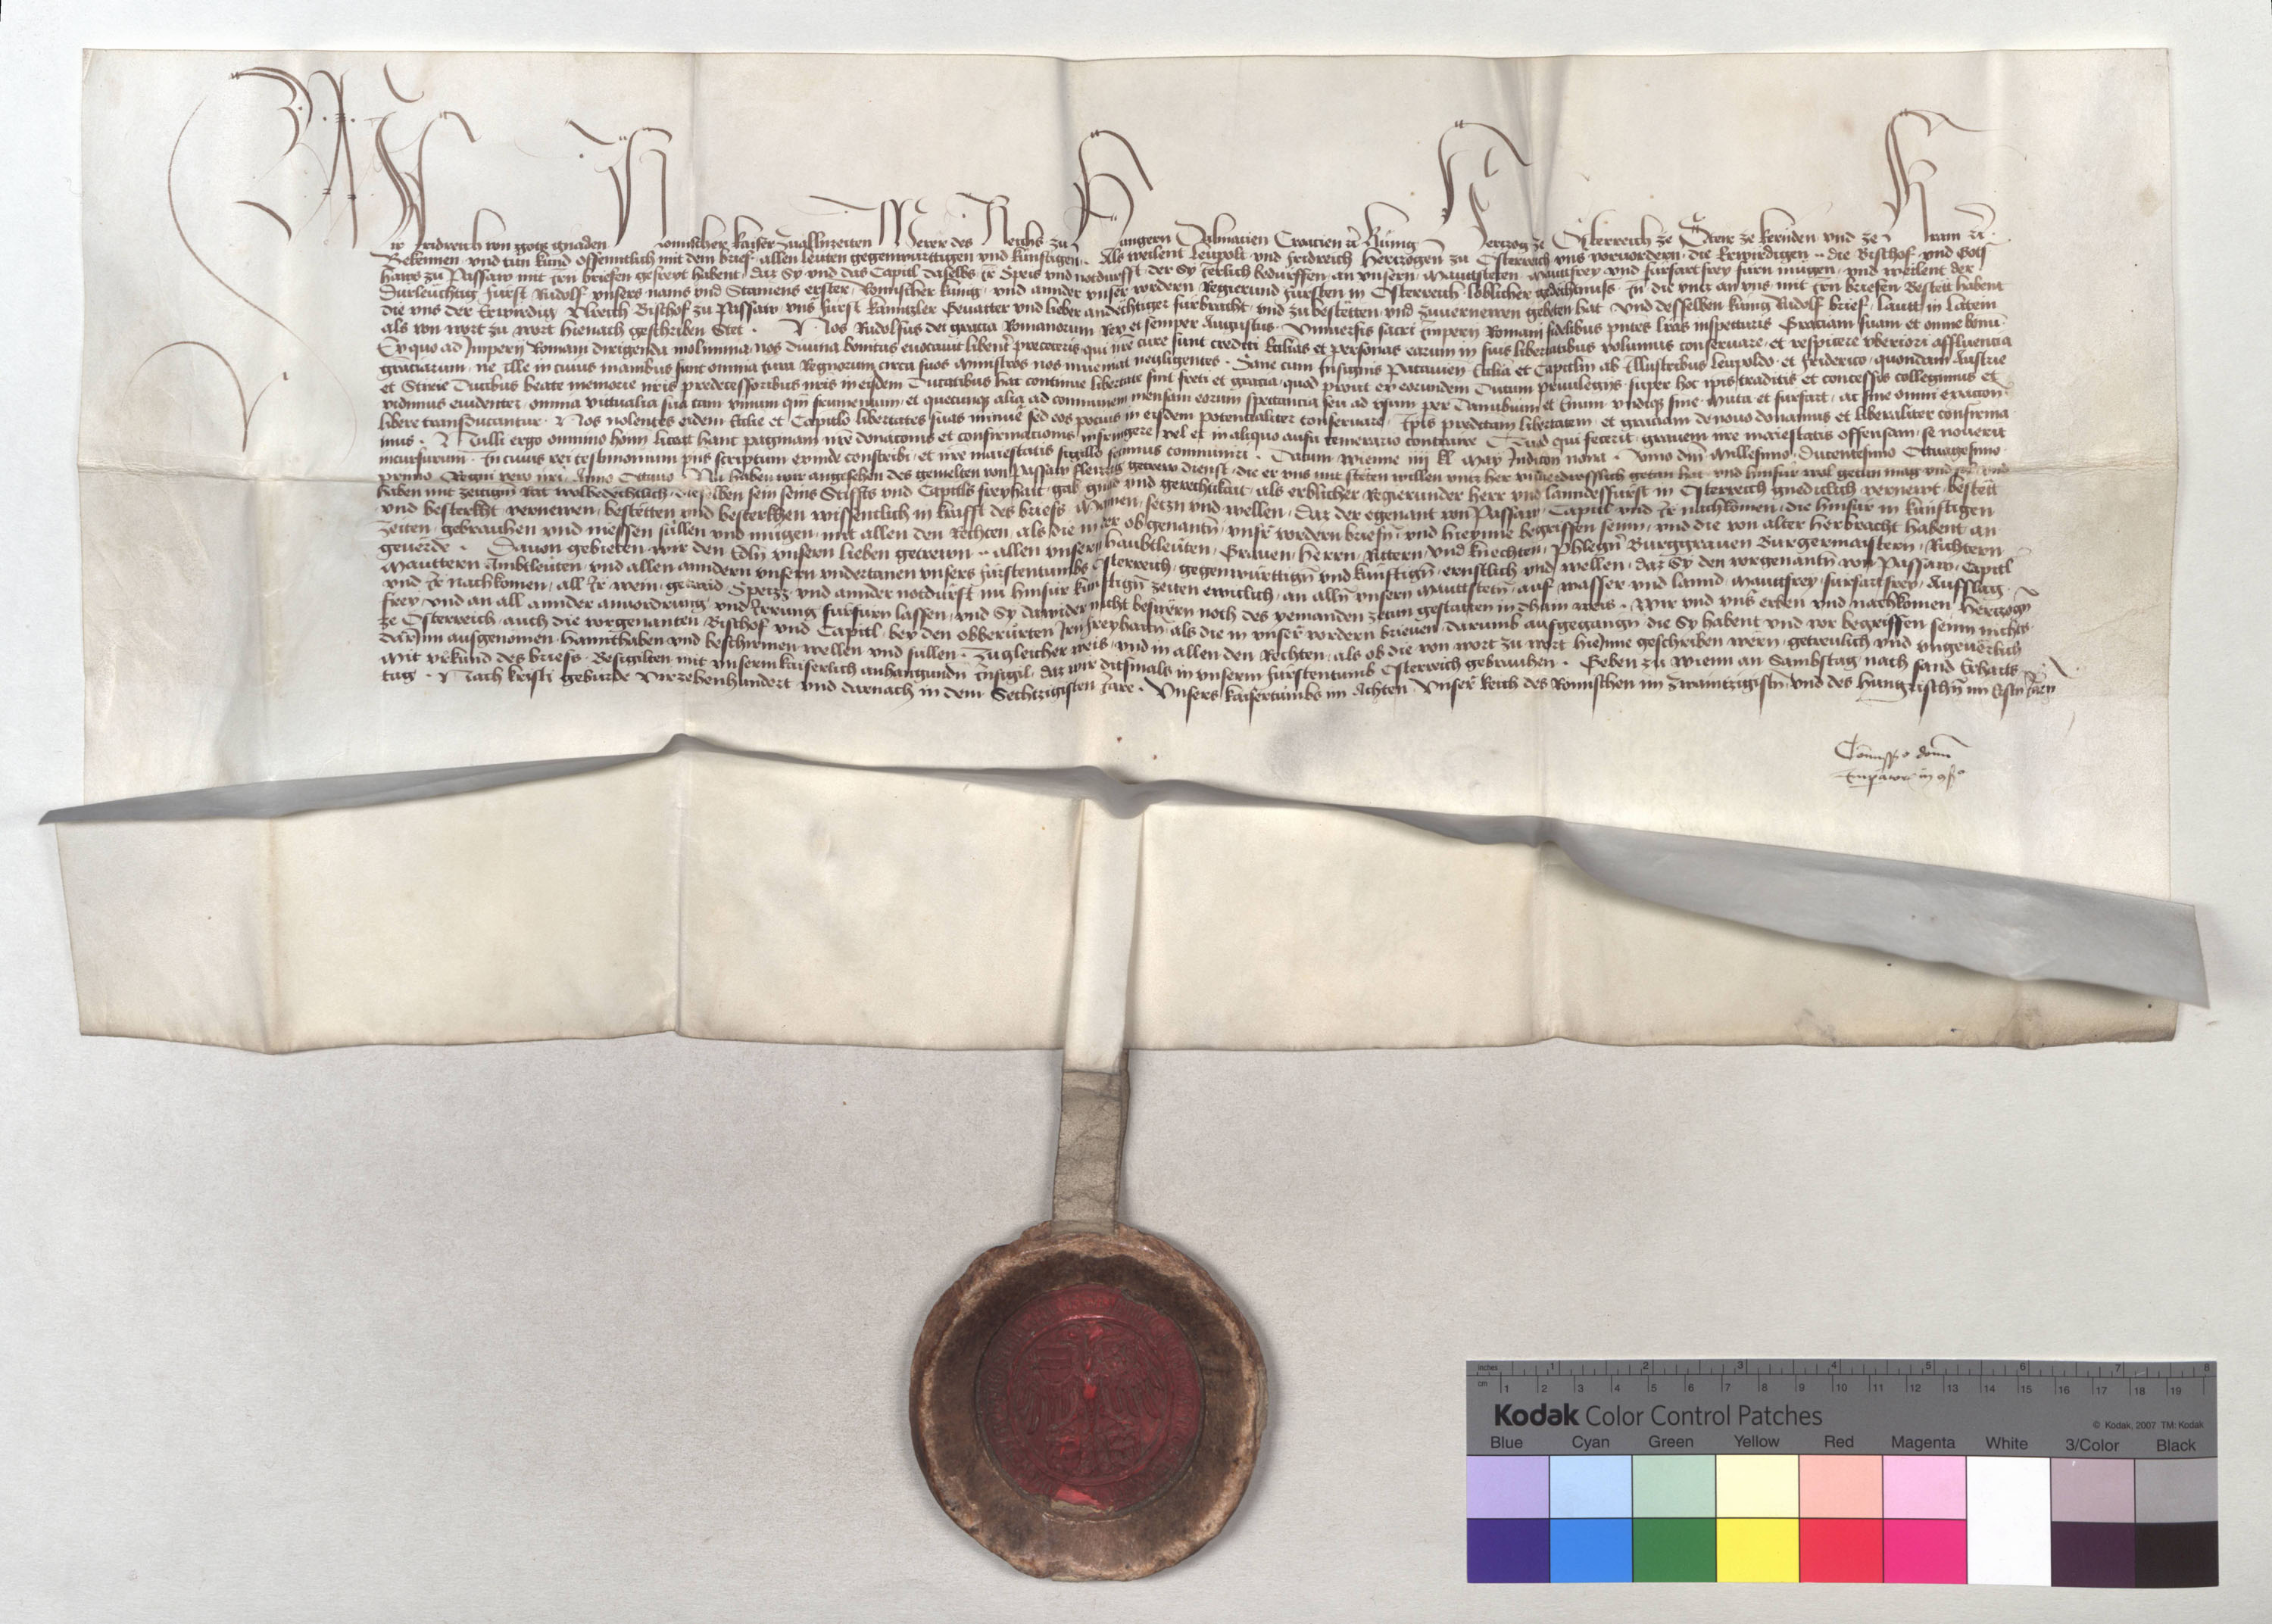 Wir Fridreich von gots gnaden Romischer kaiser Zuallnzeiten Merer des Reichs zu Hungern Dalmatien Croatien ꝛc Kunig Hertzog ze Osterreich ze Steir ze kernden vnd ze Krain ꝛc
Bekennen vnd tun kund offenntlich mit dem brief allen leuten gegenwurttigen vnd kunftigen Als weilent Leupolt vnd Fridreich Hertzogen zu Osterreich vns voruordern die Erwirdigen die Bischof vnd Gots
haws zu Passaw mit irn briefen gefreyt habent daz Sy vnd das Capitl daselbs ir Speis vnd notdurfft der Sy ierlich bedurffen an vnsern Mauttsteten Mauttfrey vnd furfartfrey furn mugen vnd weilent der
Durleuchtig Furst Rudolf vnsers nams vnd Stammens erster Romischer kunig vnd annder vnser vordern Regierund Fursten in Osterreich loblicher gedechtnuss In die vntz an vns mit irn briefen Bestett habent
die vns der Erwirdig Vlreich Bischof zu Passaw vns Furst kanntzler Geuatter vnd lieber andechtiger furbracht vnd zu bestetten vnd zuuernewen gebeten hat Vnd desselben kunig Rudolf brief lautt in latein
als von wort zu wort hienach geschriben Stet Nos Rudolfus dei gracia Romanorum Rex et semper Augustus Vniuersis sacri Imperij Romani fidelibus pntes lras inspecturis Graciam suam et omne bonu
Ex quo ad Imperij Romani dirigenda molimina nos diuina bonitas euocauit libent preceteris qui nre cure sunt crediti Ecclias et personas earum in suis libertatibus volumus conseruare et respicere vberiori affluencia
graciarum ne ille in cuius manibus sunt omnia iura Regnorum circa suos ministros nos inueniat neuligentes Sane cum Insignis Patauien Ecclia et Capitlm ab Illustribus Leupoldo et Friderico quondam Austrie
et Stirie Ducibus beate memorie nris predecessoribus nris in eisdem Ducatibus hac continue libertate sint freti et gracia quod prout ex eorundem Ducum priuilegijs super hoc ipis traditis et concessis collegimus et
vidimus euidenter omnia victualia sua tam vinum qm frumentum et quecunqz alia ad communem mensam eorum spectancia seu ad vsum per Danubium et Enum vndiqz sine Muta et furfart ac sine omni exaction
libere transducantur Nos nolentes eidem Ecclie et Capitulo libertates suas minue sed eos pocius in eisdem potencialiter conseruare Ipis predictam libertatem et graciam de nouo donamus et liberaliter confirma
mus Nulli ergo omnino homi liceat hanc paginam nre donacionis et confirmacionis infringere vel ei in aliquo ausu temerario contraire Quod qui fecerit grauem nre maiestatis offensam se nouerit
incursurum In cuius rei testimonium pns scriptum exinde conscribi et nre maiestatis sigillo fecimus communiri Datum Wienne iiij kl May Indicon nona Anno dni Millesimo Ducentesimo Octuagesimo
primo Regni vero nri Anno Octauo Nu haben wir angesehen des gemelten von Passaw fleissig getrew dienst die er vns mit steten willen vntz her vnuerdrosslich getan hat vnd hinfur wol getun mag vnd sol vnd
haben mit zeitigm Rat wolbedechtlich dieselben sein seins Stiffts vnd Capitls freyhait gab gnad vnd gerechtikait als erblicher Regierunder herr vnd lanndesfurst in Osterreich gnediclich vernewt bestett
vnd besterkht vernewen bestetten vnd besterkhen wissentlich in krafft des briefs Mainen setzn vnd wellen Daz der egenant von Passaw Capitl vnd Ir nachkomen die hinfur in kunftigen
Zeiten gebrauhen vnd niessen sullen vnd mugen mit allen den Rechten als die in der obgenantn vnsr vordern briefn vnd hieynne begriffen seinn vnd die von alter herbracht habent an
geuerde Dauon gebieten wir den Edln vnsern lieben getrewn allen vnsern haubtleuten Grauen Herrn Rittern vnd knechten Phlegn Burggrauen Burgermaistern Richtern
Mauttern Ambtleuten vnd allen anndern vnsern vndertanen vnsers Furstentumbs Osterreich gegenwurttign vnd kunftign ernstlich vnd wellen daz Sy den vorgenantn von Passaw Capitl
vnd Ir nachkomen all Ir wein getraid Speizz vnd annder notdurft nu hinfur kunftign zeiten ewiclich an alln vnsern Mauttstetn auf wasser vnd lannd Mauttfrey furfartfrey Aufslag
frey vnd an all annder anuordrung vnd Irrung furfurn lassen vnd Sy dawider nicht beswern noch des yemanden zetun gestatten in dhain weis Wir vnd vns erben vnd nachkomen Hertzogn
ze Osterreich auch die vorgenanten Bischof vnd Capitl bey den obberurten Irn freyhaitn als die in vnser vordern brieuen darumb ausgegangn die Sy habent vnd vor begriffen seinn nichts
darinn ausgenomen Hannthaben vnd beschirmen wellen vnd sullen Zugleicher weis vnd in allen den Rechten als ob die von wort zu wort hieinne geschriben wern getreulich vnd vngeuerlich
Mit vrkund des briefs Besigilten mit vnserm kaiserlich anhangundn Insigil daz wir ditsmals in vnserm Furstentumb Osterreich gebrauhen Geben zu Wienn an Sambstag nach sand Erharts
tag Nach kristi geburde Vierzehenhundert vnd darnach in dem Sechtzigisten Jare Vnsers kaisertumbs im Achten Vnser Reich des Romischen im Zwaintzigistn vnd des Hungrischn im Erstn Jarn
Comissio domi
Imperatoris in consilio
inches 1 2 3 4 5 6 7 8
cm 1 2 3 4 5 6 7 8 9 10 11 12 13 14 15 16 17 18 19
Kodak Color Control Patches © Kodak, 2007 TM: Kodak
Blue Cyan Green Yellow Red Magenta White 3/Color Black